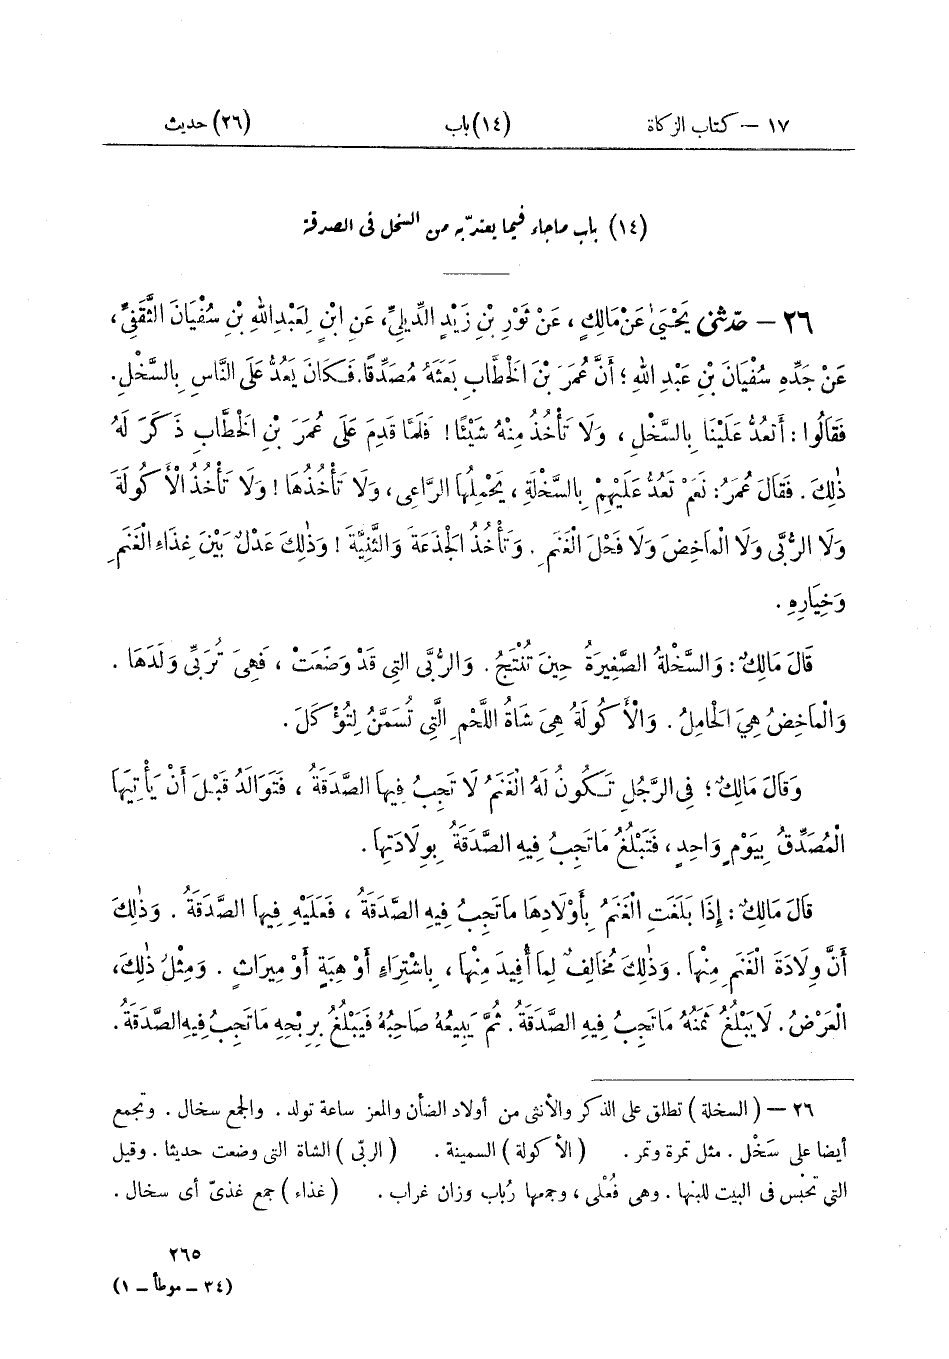 ١٧ – كتاب الزكاة (١٤) باب (٢٦) حديث
(١٤) باب ماجاء فيما يعتدّ به من السخل فى الصدقة
٢٦ – حَدَّثَنِى يَحْيَىٰ عَنْ مَالِكٍ، عَنْ ثَوْرِ بْنِ زَيْدٍ الدِّيلِيِّ، عَنِ ابْنٍ لِعَبْدِ اللهِ بْنِ سُفْيَانَ الثَّقَفِيِّ،
عَنْ جَدِّهِ سُفْيَانَ بْنِ عَبْدِ اللهِ؛ أَنَّ عُمَرَ بْنَ الْخَطَّابِ بَعَثَهُ مُصَدِّقًا. فَكَانَ يَعُدُّ عَلَى النَّاسِ بِالسَّخْلِ.
فَقَالُوا: أَتَعُدُّ عَلَيْنَا بِالسَّخْلِ، وَلَا تَأْخُذُ مِنْهُ شَيْئًا! فَلَمَّا قَدِمَ عَلَى عُمَرَ بْنِ الْخَطَّابِ ذَكَرَ لَهُ
ذٰلِكَ. فَقَالَ عُمَرُ: نَعَمْ تَعُدُّ عَلَيْهِمْ بِالسَّخْلَةِ، يَحْمِلُهَا الرَّاعِى، وَلَا تَأْخُذُهَا! وَلَا تَأْخُذُ الْأَكُولَةَ
وَلَا الرُّبَّى وَلَا الْمَاخِضَ وَلَا فَحْلَ الْغَنَمِ. وَتَأْخُذُ الْجَذَعَةَ وَالثَّنِيَّةَ! وَذٰلِكَ عَدْلٌ بَيْنَ غِذَاءِ الْغَنَمِ
وَخِيَارِهِ.
قَالَ مَالِكٌ: وَالسَّخْلَةُ الصَّغِيرَةُ حِينَ تُنْتَجُ. وَالرُّبَّى الَّتِى قَدْ وَضَعَتْ، فَهِىَ تُرَبِّى وَلَدَهَا.
وَالْمَاخِضُ هِيَ الْحَامِلُ. وَالْأَكُولَةُ هِىَ شَاةُ اللَّحْمِ الَّتِى تُسَمَّنُ لِتُؤْكَلَ.
وَقَالَ مَالِكٌ؛ فِى الرَّجُلِ تَكُونُ لَهُ الْغَنَمُ لَا تَجِبُ فِيهَا الصَّدَقَةُ، فَتَوَالَدُ قَبْلَ أَنْ يَأْتِيَهَا
الْمُصَدِّقُ بِيَوْمٍ وَاحِدٍ، فَتَبْلُغُ مَا تَجِبُ فِيهِ الصَّدَقَةُ بِوِلَادَتِهَا.
قَالَ مَالِكٌ: إِذَا بَلَغَتِ الْغَنَمُ بِأَوْلَادِهَا مَا تَجِبُ فِيهِ الصَّدَقَةُ، فَعَلَيْهِ فِيهَا الصَّدَقَةُ. وَذٰلِكَ
أَنَّ وِلَادَةَ الْغَنَمِ مِنْهَا. وَذٰلِكَ مُخَالِفٌ لِمَا أُفِيدَ مِنْهَا، بِاشْتِرَاءٍ أَوْ هِبَةٍ أَوْ مِيرَاثٍ. وَمِثْلُ ذٰلِكَ،
الْعَرْضُ. لَا يَبْلُغُ ثَمَنُهُ مَا تَجِبُ فِيهِ الصَّدَقَةُ. ثُمَّ يَبِيعُهُ صَاحِبُهُ فَيَبْلُغُ بِرِبْحِهِ مَا تَجِبُ فِيهِ الصَّدَقَةُ.
٢٦ – (السخلة) تطلق على الذكر والأنثى من أولاد الضأن والمعز ساعة تولد. والجمع سخال. وتجمع
أيضا على سَخْل. مثل تمرة وتمر. (الأكولة) السمينة. (الربّى) الشاة التى وضعت حديثا. وقيل
التى تحبَس فى البيت للبنها. وهى فُعْلى، وجمعها رُباب وزان غراب. (غذاء) جمع غذىّ أى سخال.
٢٦٥
(٣٤ – موطأ – ١)